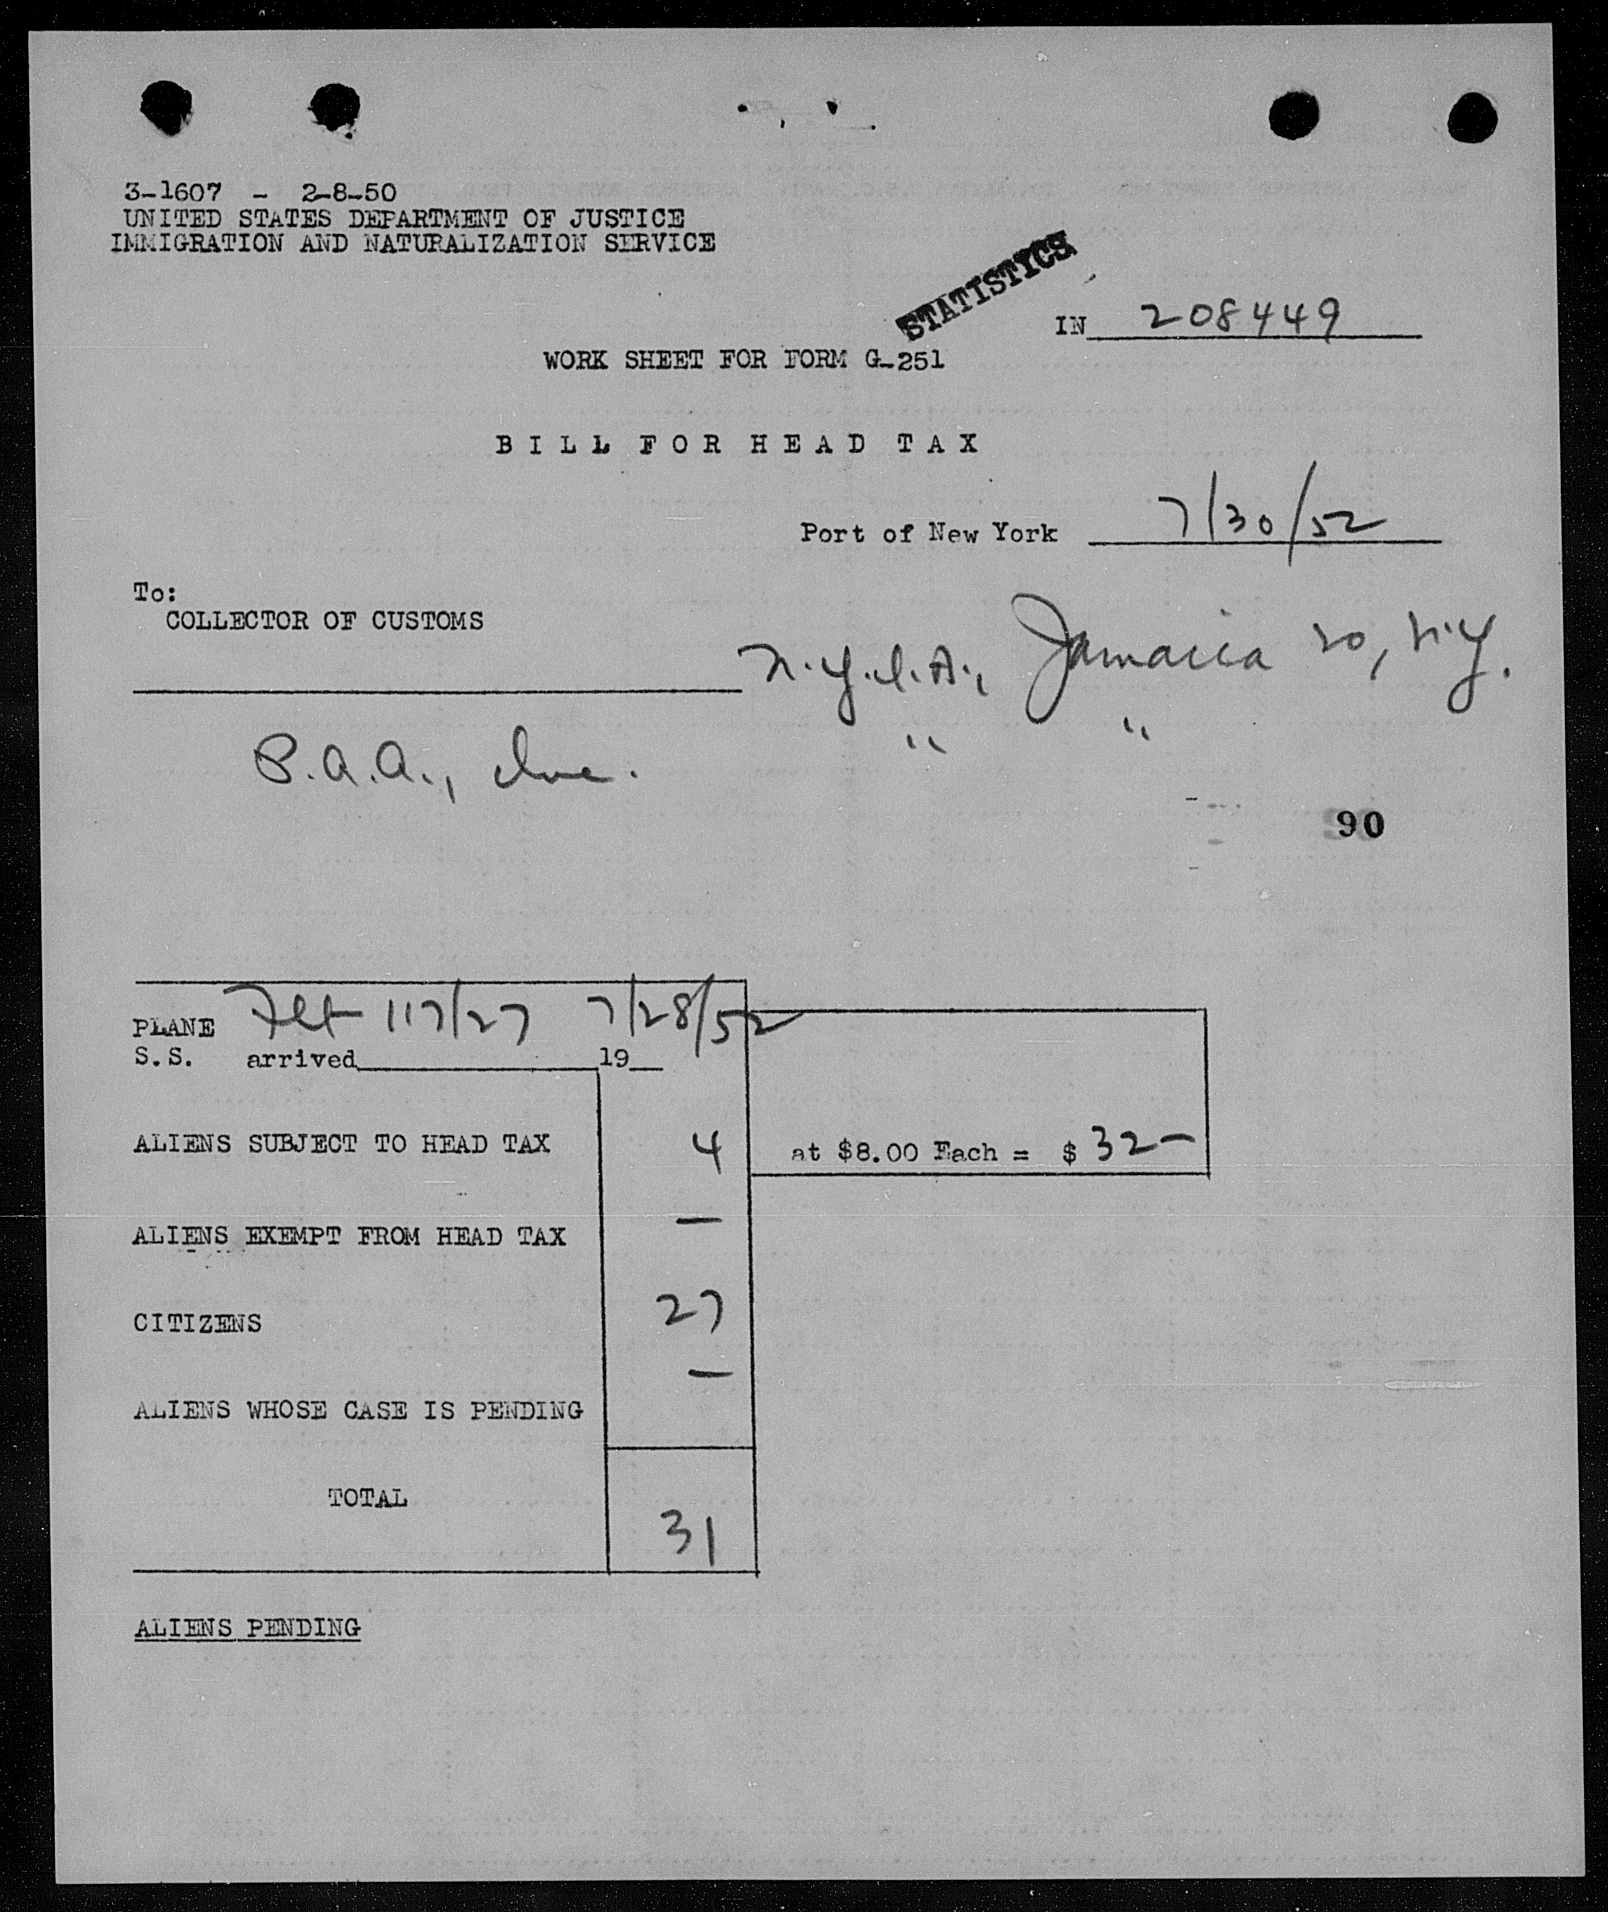 3-1607 - 2-8-50
UNITED STATES DEPARTMENT OF JUSTICE
IMMIGRATION AND NATURALIZATION SERVICE
STATISTICS
IN 208449
WORK SHEET FOR FORM G-251
BILL FOR HEAD TAX
Port of New York 7/30/52
To:
COLLECTOR OF CUSTOMS
N.Y.I.A., Jamaica 20, N.Y.
P.A.A., Inc. " "
90
PLANE Flt 117/27 7/28/52
S.S. arrived 19
ALIENS SUBJECT TO HEAD TAX 4 at $8.00 Each = $ 32-
ALIENS EXEMPT FROM HEAD TAX —
CITIZENS 27
ALIENS WHOSE CASE IS PENDING —
TOTAL 31
ALIENS PENDING